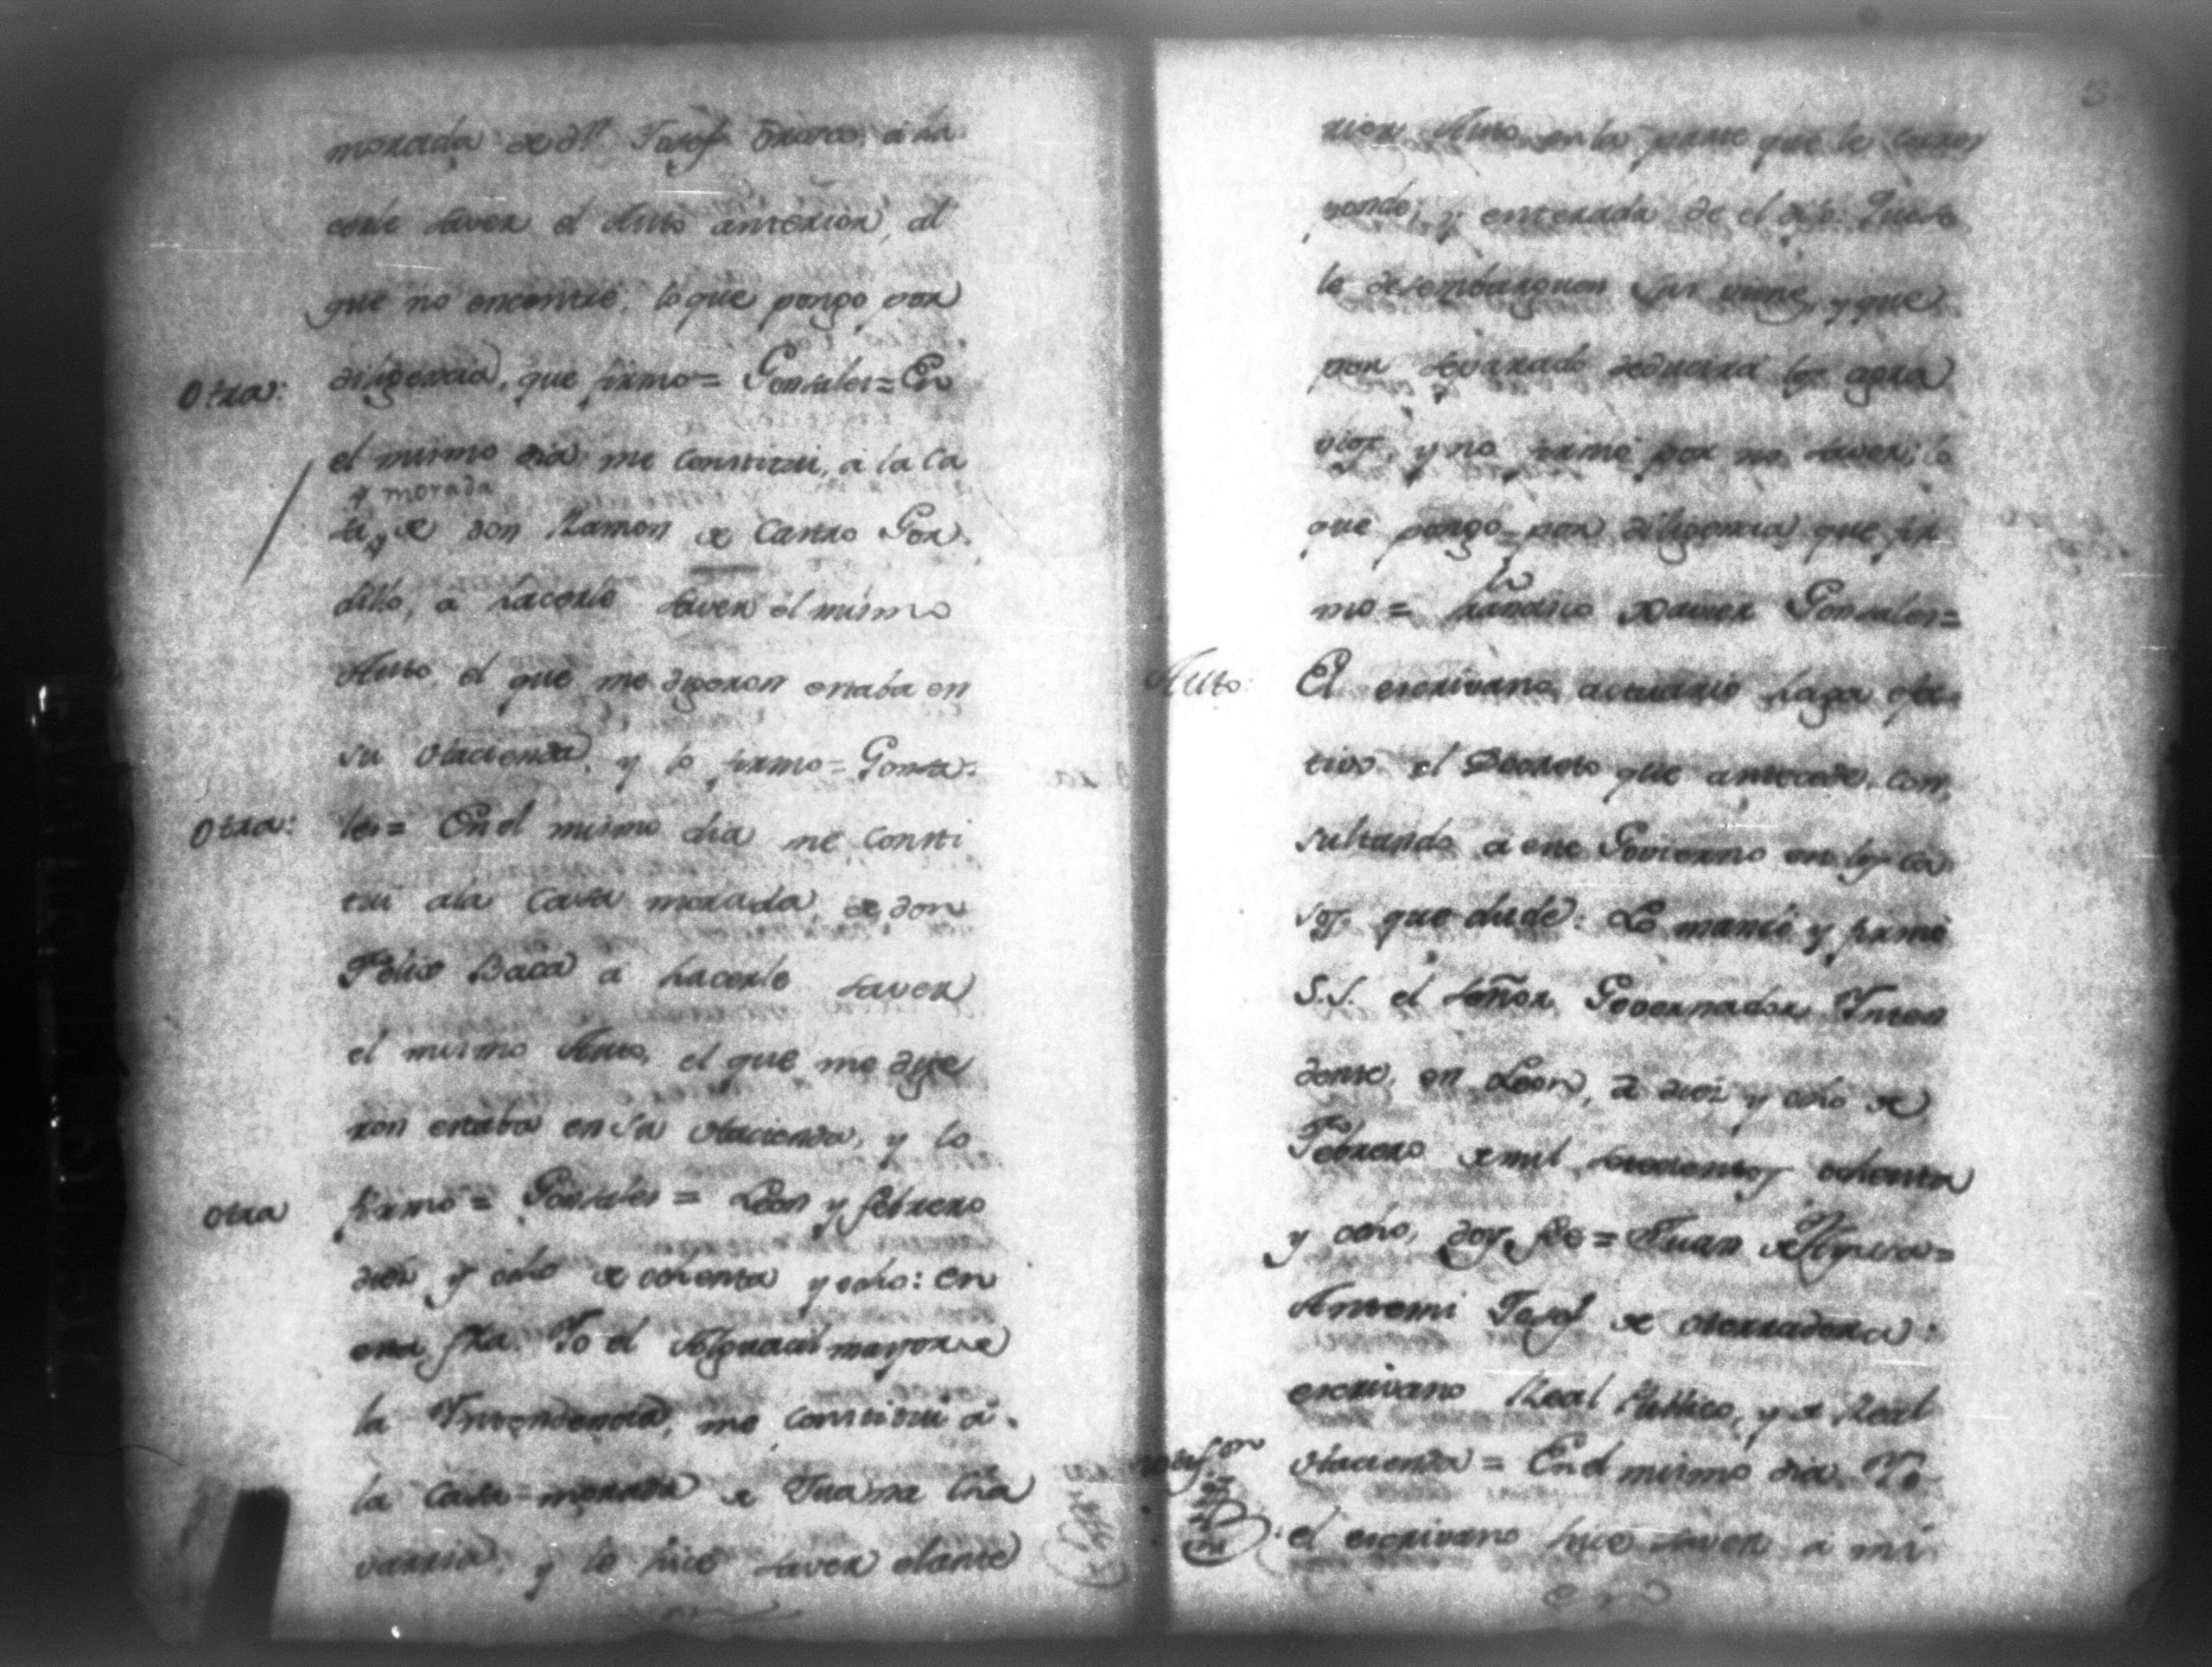 morada de dn. Josef Orosco, a ha
cerle saver el Auto anterior, al
que no encontré, lo que pongo por
Otra: diligencia, que firmo = Gonsales = En
el mismo dia me constitui, a la ca
y morada
sa, de don Ramon de Castro Gor-
dillo, a hacerle saver el mismo
Auto, el que me digeron estaba en
su Hacienda, y lo firmo = Gonsa-
Otra: les = En el mismo dia me consti
tui a la casa morada, de don
Félix Baca a hacerle saver
el mismo Auto, el que me dige
ron estaba en su Hacienda, y lo
Otra firmo = Gonsales = Leon y febrero
dies y ocho de ochenta y ocho: en
esta fha. Yo el Alguacil mayor de
la Intendencia, me constitui a
la casa morada de Juana Cha
varria, y le hice saver el ante
3
rior Auto en la parte que le corres
ponde; y enterada de el dijo: Que se
le desembarguen sus viene, y que
por separado dedusira los agra
vios, y no firmó por no saver; lo
que pongo por diligencia que fir
mo = Francisco Xavier Gonsales =
Auto: El escrivano actuario haga efec-
tivo el Decreto que antecede, con-
sultando a este Govierno en los ca-
sos que dude: Lo mandó y firmó
S.S. el señor Governador Inten
dente, en Leon, a diez y ocho de
Febrero de mil setecientos ochenta
y ocho, doy fee = Juan de Ayssa =
Antemi Josef de Herradora:
escrivano Real Publico, y de Real
Hacienda = En el mismo dia Yo
el escrivano hice saver a mi